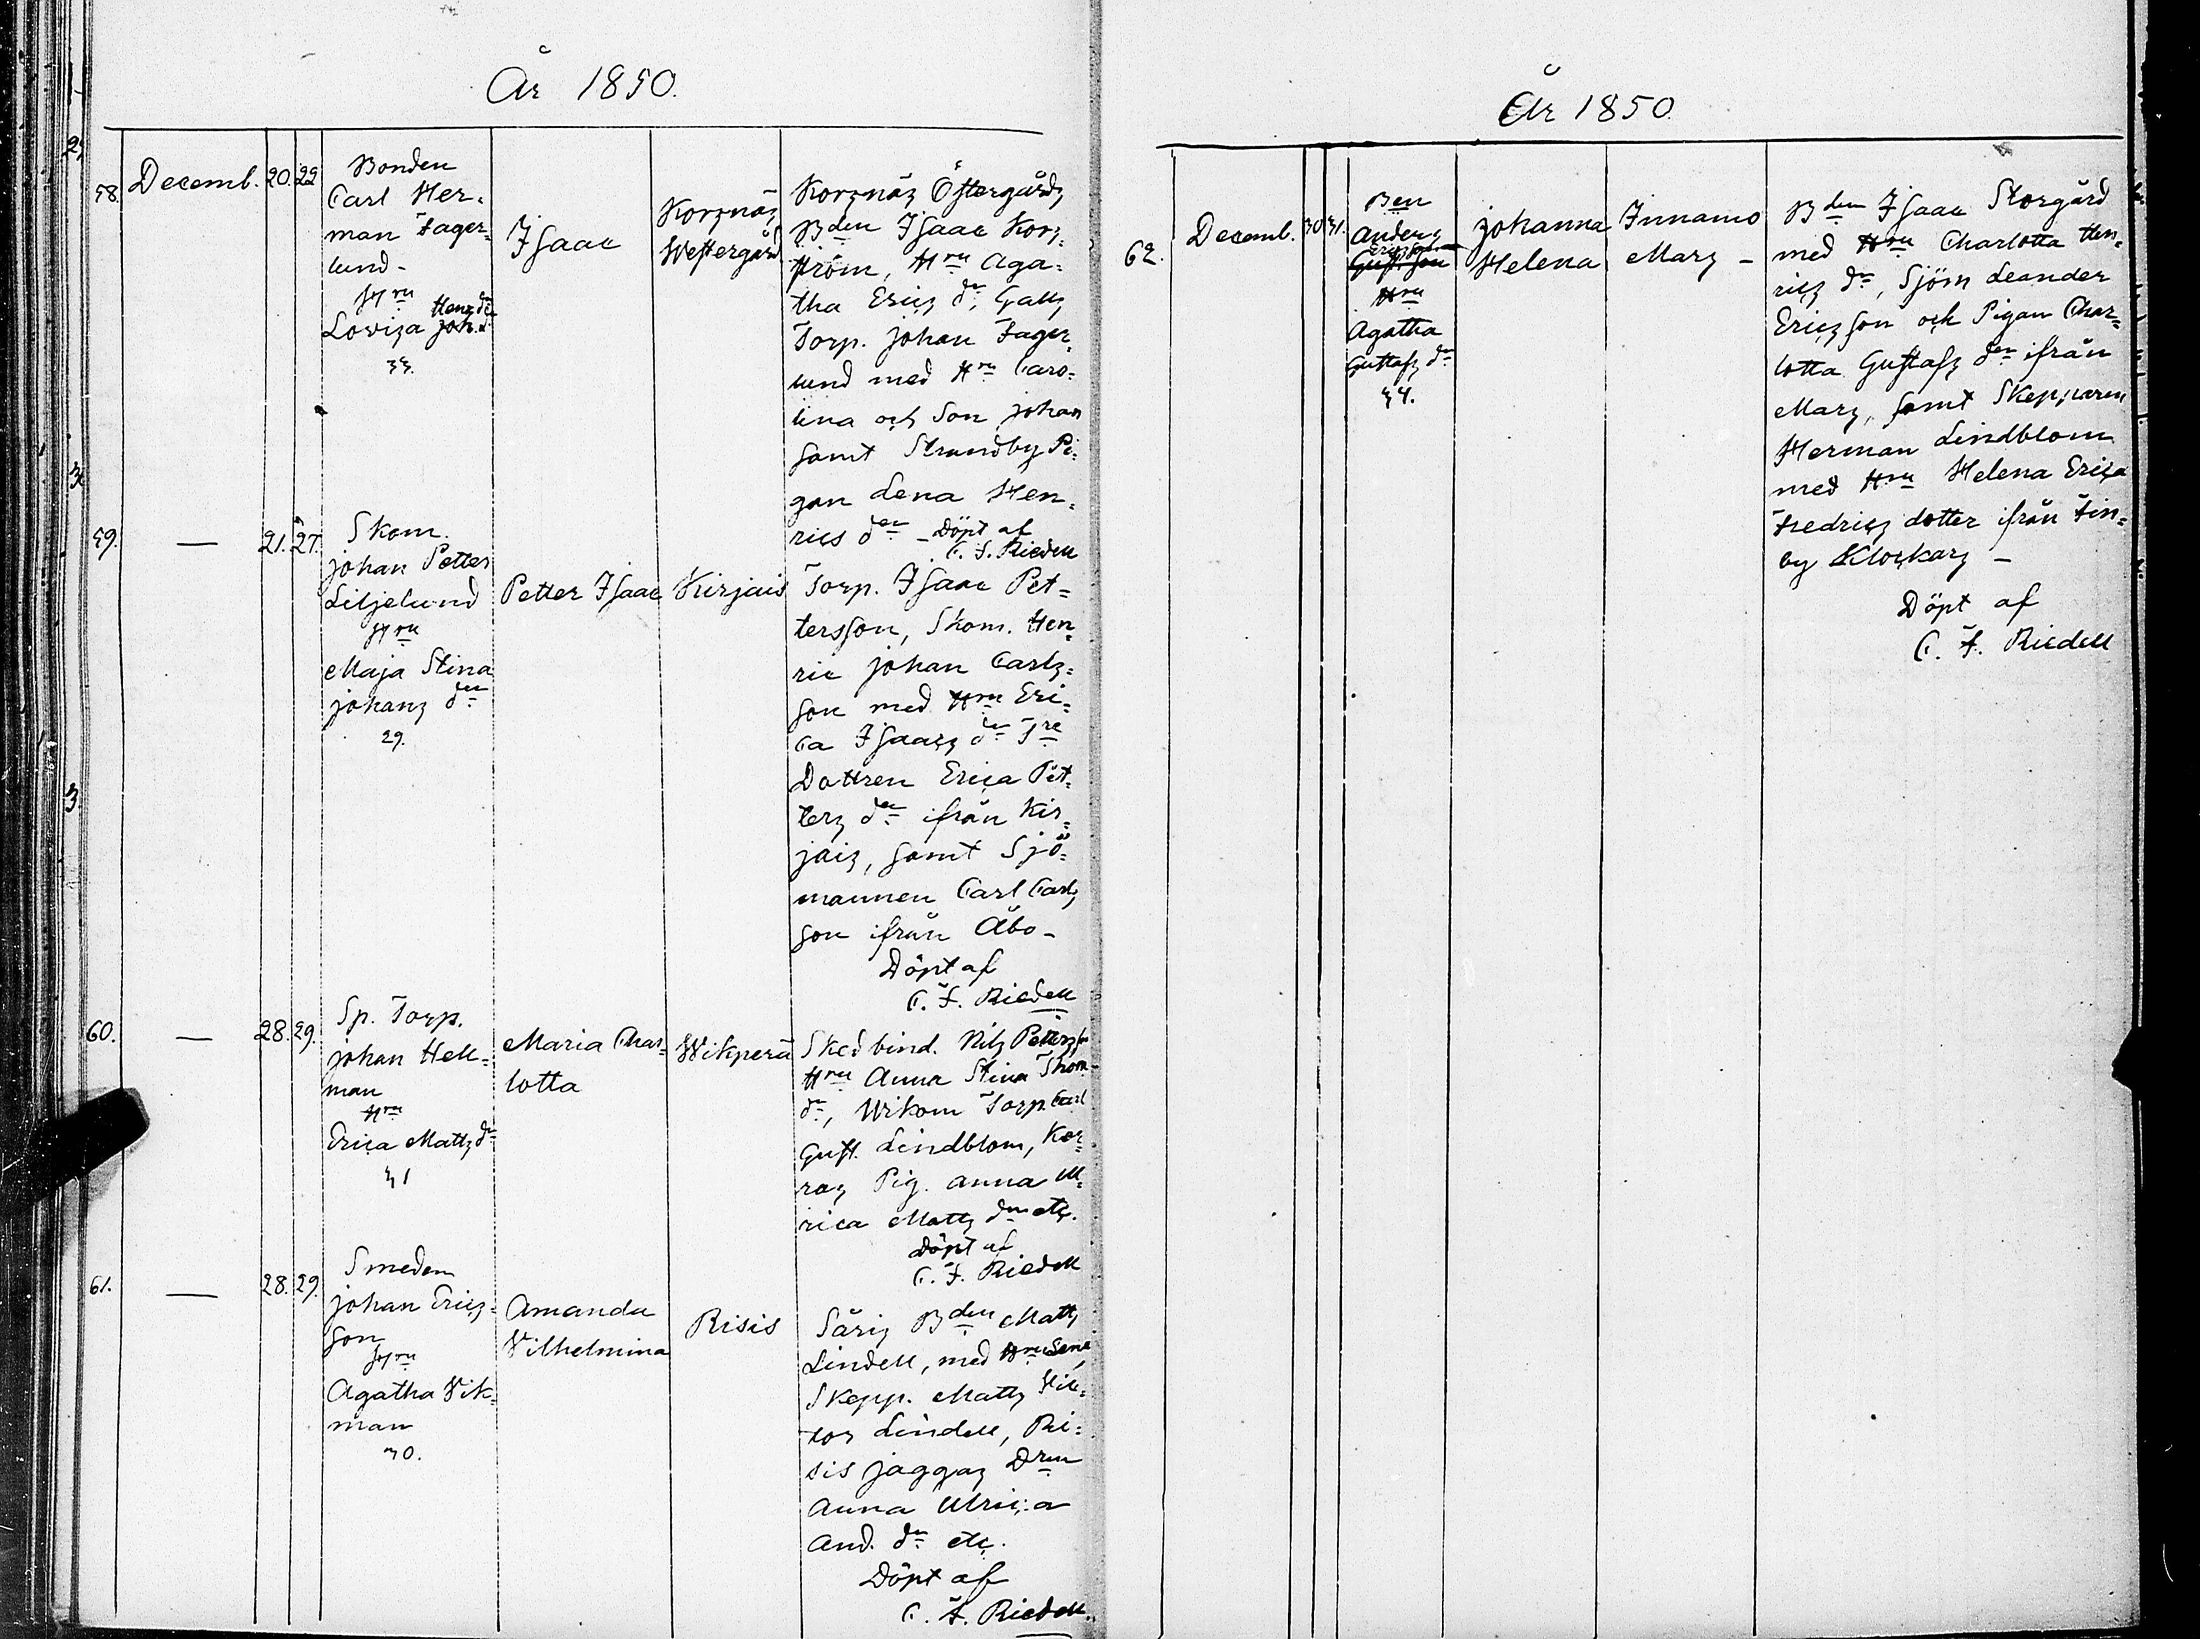 År 1850.
58.
Decemb.
20.
22
Bonden
Carl Her-
man Fager-
lund -
Hru
Lovisa Henr. dr
Joh. d.
33.
Isaac
Korsnäs
Westergård
Korsnäs Östergårds
Bden Isaac Kors-
ström, Hru Aga-
tha Erics dr, Galts
Torp. Johan Fager-
lund med Hru Caro-
lina och Son Johan
samt Strandby Pi-
gan Lena Hen-
rics dr - Döpt af
C. F. Riedell
59.
—
21.
27.
Skom.
Johan Petter
Liljelund
Hru
Maja Stina
Johans dr
29.
Petter Isaac
Kirjais
Torp. Isaac Pet-
tersson, Skom. Hen-
ric Johan Carls-
son med Hru Eri-
ca Isaacs dr Tre
Dottren Erica Pet-
ters dr ifrån Kir-
jais, samt Sjö-
mannen Carl Carls
son ifrån Åbo -
Döpt af
C. F. Riedell
60.
—
28.
29.
Sp. Torp.
Johan Hell-
man
Hru
Erica Matts dr
41
Maria Char-
lotta
Wikperä
Sked bind. Nils Petersson
Hru Anna Stina Thom-
dr, Wikom Torp. Carl
Gust. Lindblom, Kor-
ras Pig. Anna Ul-
rica Matts dr etc.
Döpt af
C. F. Riedell
61.
—
28.
29.
Smeden
Johan Erics-
son
Hru
Agatha Vik-
man
30.
Amanda
Vilhelmina
Risis
Säris Bden Matts
Lindell, med Hru Lena
Skepp. Matts Vik-
tor Lindell, Ri-
sis Jaggas Dren
Anna Ulrica
And. dr etc.
Döpt af
C. F. Riedell.
År 1850
62.
Decemb.
30
31.
Ben
Anders
Ericsson
Gustsson
Hru
Agatha
Gustafs dr
44.
Johanna
Helena
Innamo
Mars -
Bden Isaac Storgård
med Hru Charlotta Hen-
rics dr, Sjöm Leander
Ericsson och Pigan Char-
lotta Gustafs dr ifrån
Mars, samt Skepparen
Herman Lindblom
med Hru Helena Erica
Fredrics dotter ifrån Fin-
by Klockars -
Döpt af
C. F. Riedell